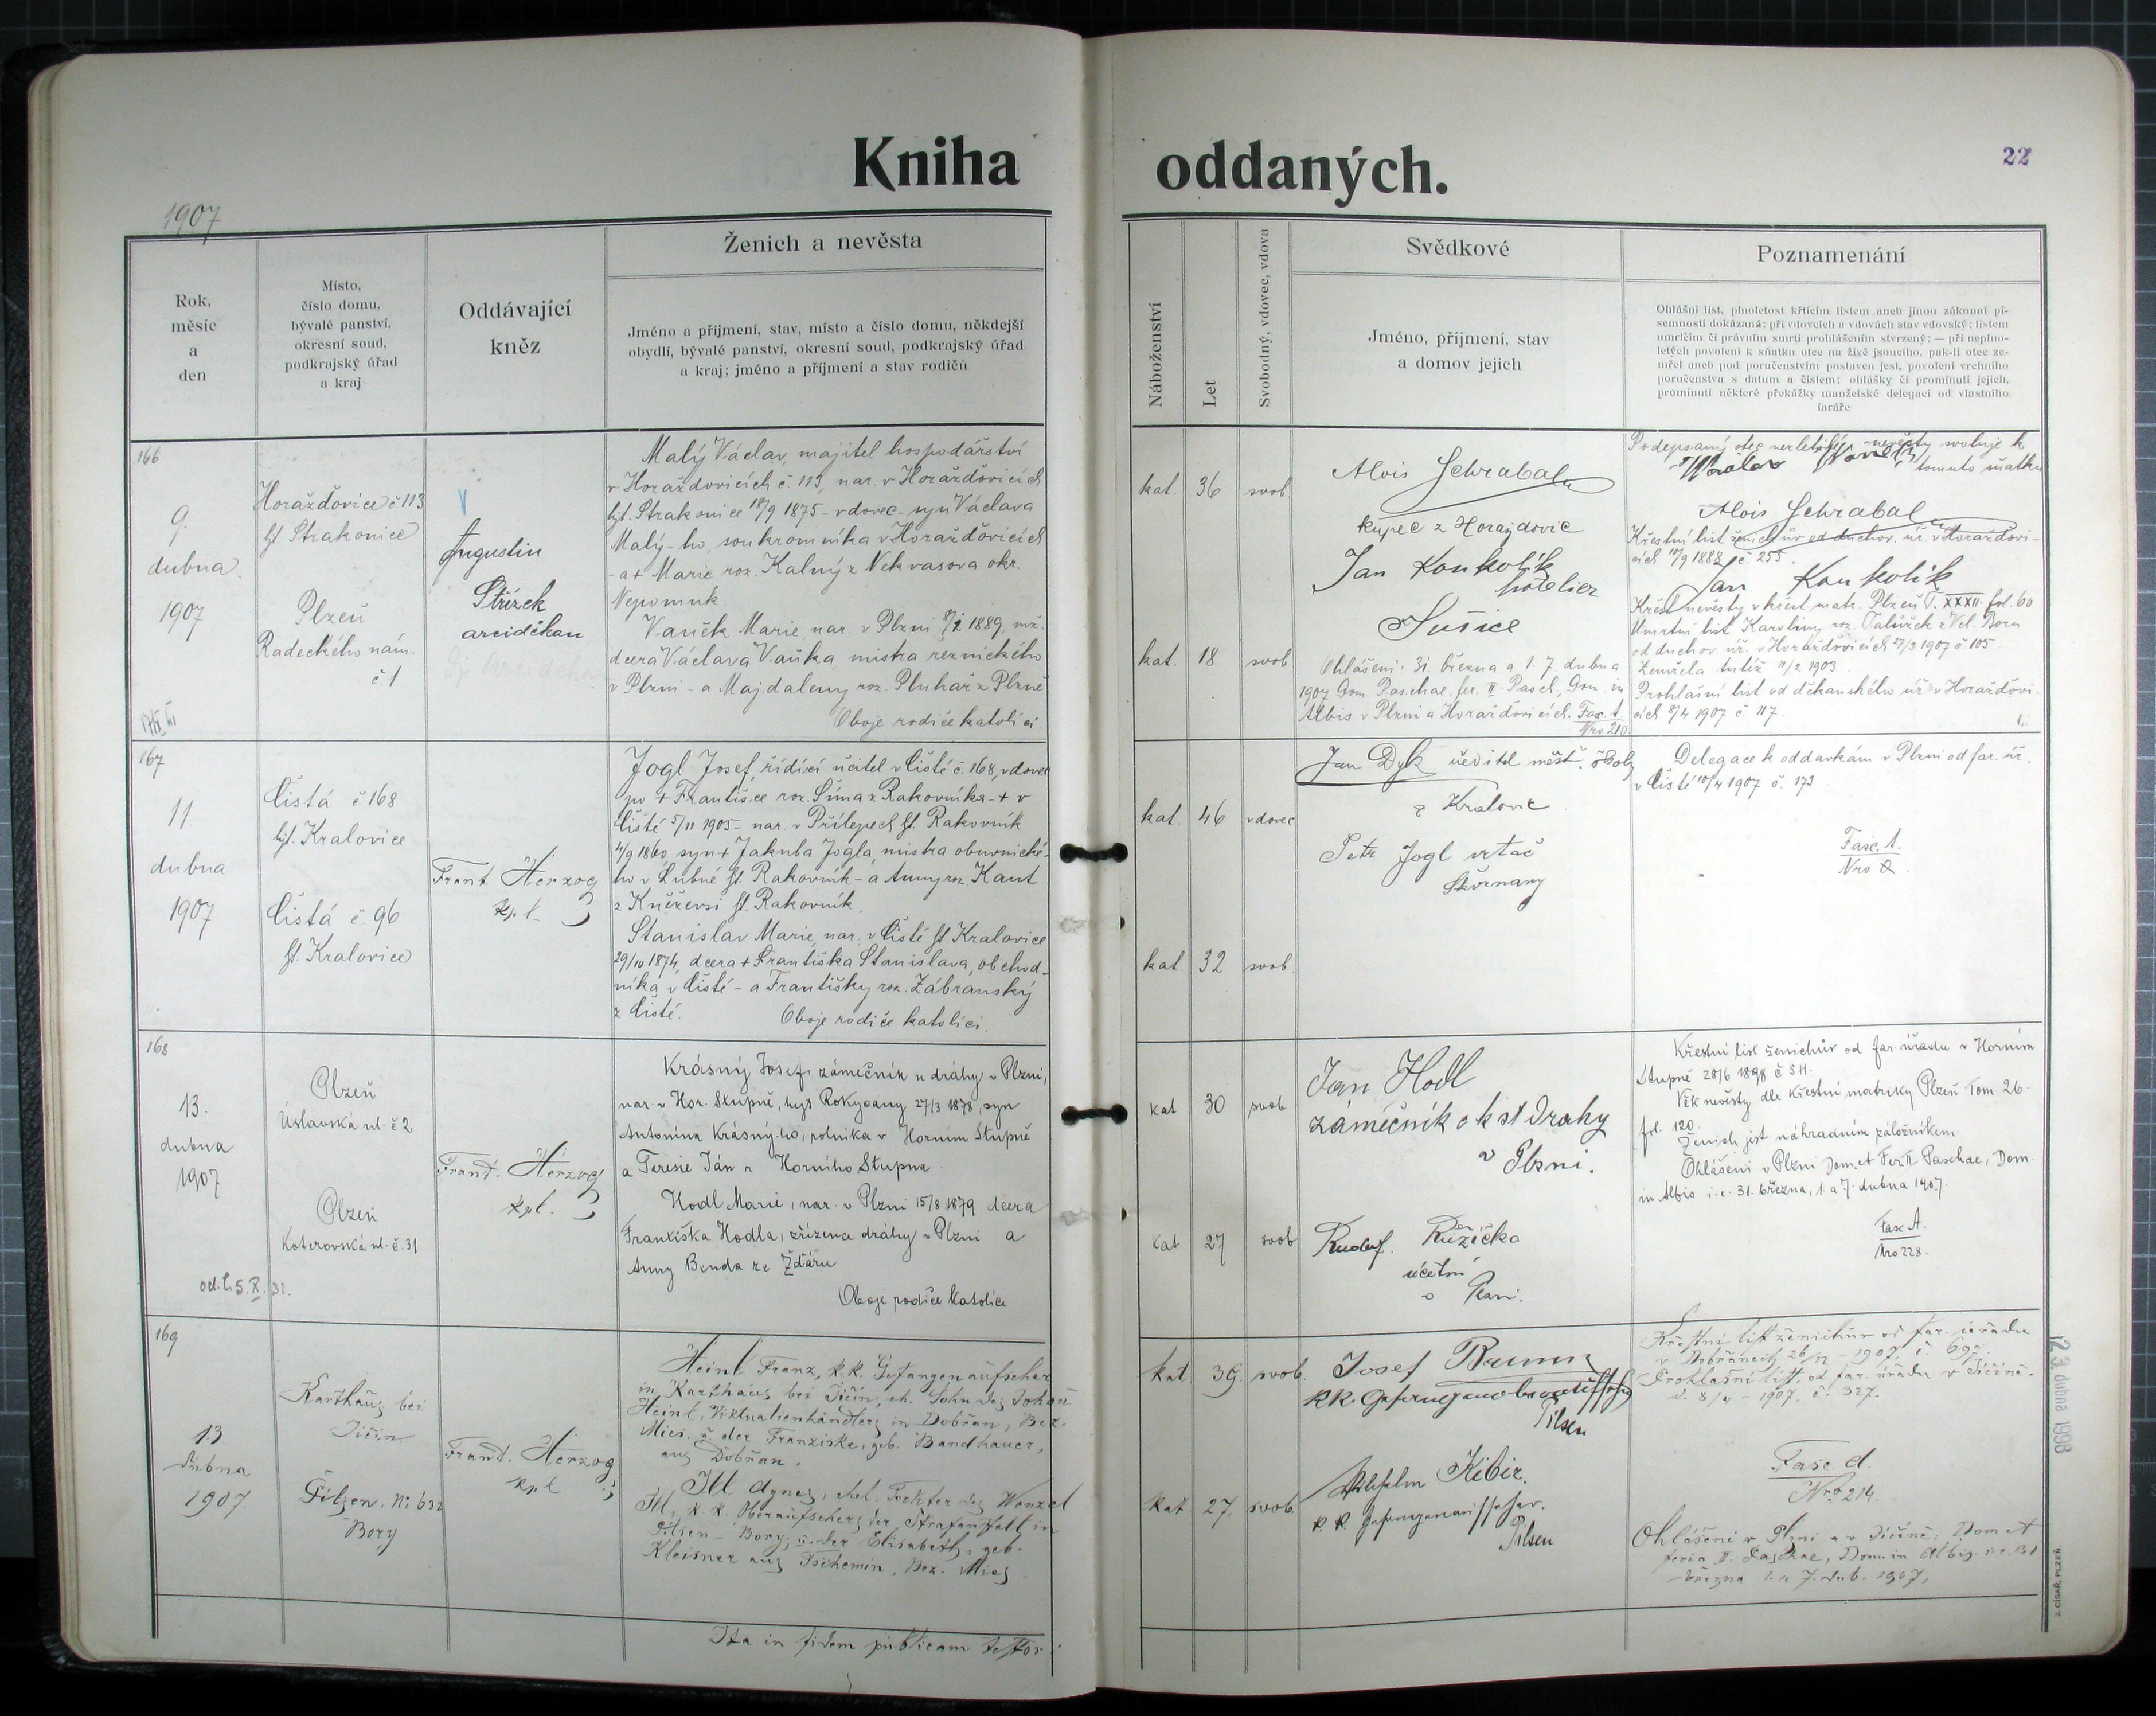 Kniha oddaných.
22
1907
Rok,
měsíc
a
den
Místo,
číslo domu,
bývalé panství,
okresní soud,
podkrajský úřad
a kraj
Oddávající
kněz
Ženich a nevěsta
Jméno a příjmení, stav, místo a číslo domu, někdejší
obydlí, bývalé panství, okresní soud, podkrajský úřad
a kraj; jméno a příjmení a stav rodičů
Náboženství
Let
Svobodný, vdovec, vdova
Svědkové
Jméno, příjmení, stav
a domov jejich
Poznamenání
Ohlášní list, plnoletost křticím listem aneb jinou zákonní pí-
semností dokázaná; při vdovcích a vdovách stav vdovský; listem
umrlčím či právním smrti prohlášením stvrzený; — při neplno-
letých povolení k sňatku otce na živě jsoucího, pak-li otec ze-
mřel aneb pod poručenstvím postaven jest, povolení vrchního
poručenstva s datum a číslem; ohlášky či prominutí jejich,
prominutí některé překážky manželské delegací od vlastního
faráře
166
9.
dubna
1907
Horažďovice č 113
hjt. Strakonice
Plzeň
Radeckého nám.
č 1
Augustin
Střízek
arciděkan
Malý Václav, majitel hospodářství
v Horažďovicích č. 113, nar. v Horažďovicích
hjt. Strakonice 18/9 1875 - vdovec - syn Václava
Malý-ho, soukromníka v Horažďovicích
- a + Marie roz. Kalný z Nekvasova okr.
Nepomuk
Vaněk Marie, nar. v Plzni 1889, mž.
dcera Václava Vaňka, mistra řeznického
v Plzni - a Majdaleny roz. Pluhař z Plzně
Oboje rodiče katolíci
kat. 36 svob
kat. 18 svob
Alois Schrabal
kupec z Horažďovic
Jan Koukolík
hotelier
Sušice
Ohlášeni: 31 března a 1. 7 dubna
1907 Dom. Paschae fer. II Pasch, Dom. in
Albis v Plzni a Horažďovicích. Fasc. 1
Nro 210
Podepsaný otec nezletilé nevěsty svoluje k
tomuto sňatku
Alois Schrabal
Křestní list ženichův od duchov. úř. v Horažďovi-
cích 10/9 1888 č 255
Jan Koukolík
Křest nevěsty v křest. matr. Plzeň T. XXXII. fol. 60
Umrtní list Karoliny roz. z Vel. Boru
od duchov. úř. v Horažďovicích 27/3 1907 č 105
Zemřela tutéž 11/2 1903
Prohlášní list od děkanského úř. v Horažďovi-
cích 8/4 1907 č 117.
167
11.
dubna
1907
Čistá č 168
hjt. Kralovice
Čistá č. 96
hjt. Kralovice
Frant. Herzog
kpl.
Jogl Josef, řídící učitel v Čisté č. 168, vdovec
po + Františce roz. Šíma z Rakovníka - + v
Čisté 5/11 1905 - nar. v Přílepech hjt. Rakovník
4/9 1860, syn + Jakuba Jogla, mistra obuvnické-
ho v Lubné hjt. Rakovník - a Anny roz. Kant
z Kněževsi hjt. Rakovník.
Stanislav Marie, nar. v Čisté hjt. Kralovice
29/10 1874, dcera + Františka Stanislava, obchod-
níka v Čisté - a Františky roz. Zábranský
z Čisté. Oboje rodiče katolíci.
kat. 46 vdovec
kat. 32 svob.
Jan Dyk učitel měšť. školy
z Kralovic
Petr Jogl vrtač
Skvrňany
Delegace k oddavkám v Plzni od far. úř.
v Čisté 10/4 1907 č. 173
Fasc. 1.
168
13.
dubna
1907
Plzeň
Úslavská ul. č 2
Plzeň
Koterovská ul. č. 31
Frant. Herzog
kpl.
Krásný Josef, zámečník u dráhy v Plzni,
nar. v Hor. Stupně, hejt Rokycany 27/3 1878, syn
Antonína Krásný-ho, rolníka v Horním Stupně
a Teresie Ján z Horního Stupna
Hodl Marie, nar. v Plzni 15/8 1879 dcera
Františka Hodla, zřízence dráhy v Plzni a
Anny Benda ze Žďáru
Oboje rodiče katolíci
kat 30 svob
kat 27 svob
Jan Hodl
zámečník c k st Drahy
v Plzni.
Rudolf. Růžička
účetní
v Plzni.
Křestní list ženichův od far. úřadu v Horním
Stupně 28/6 1898 č 54.
Věk nevěsty dle křestní matriky Plzeň Tom 26.
fol. 120.
Ženich jest náhradním záložníkem.
Ohlášeni v Plzni Dom. et Fer II Paschae, Dom.
in Albis i.e. 31. března, 1. a 7. dubna 1907.
Fasc A.
Nro 228.
169
13
dubna
1907.
Karthaus bei
Jičín
Pilsen. No 632
Bory
Frant. Herzog
kpl
Heinl Franz, k.k. Gefangenaufseher
in Karthaus bei Jičín, eh. Sohn des Johan
Heinl, Viktualienhändlers in Dobřan, Bez.
Mies. u. der Franziska, geb. Bandhauer,
aus Dobřan.
Agnes, ehel. Tochter des Wenzel
k. k. Oberaufsehers der Strafanstalt in
Pilsen - Bory, u. der Elisabeth, geb.
Kleisner aus Tschemin, Bez. Mies.
kat. 39. svob.
kat 27. svob.
Josef
Pilsen
Wilhelm Kibir.
k. k. Gefangenaufseher.
Pilsen
Křestní list ženichův od far. úřadu
v Dobřanech 26/2 - 1907. č. 69.
Prohlašní list. od far. úřadu v Jičíně.
d. 8/4 - 1907. č. 327.
Fasc. A.
Nro 214.
Ohlášeni v Plzni a v Jičíně. Dom et
feria II. Paschae, Dom. in Albis i.e. 31
března 1. a 7. dub. 1907.
Ita in fidem publicam testor:
12. dubna 1998
J. CÍSAŘ, PLZEŇ.